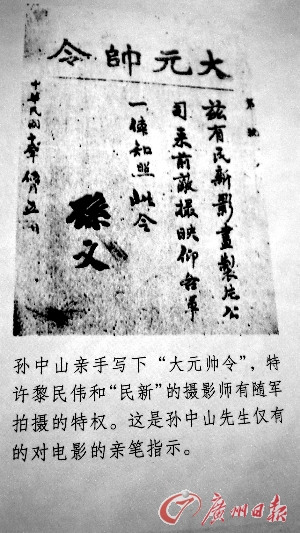 大元帥令
第 號
兹有民新影畫製片公
司来前敵攝映仰各軍
一体知照此令
孫文
中華民國十
孙中山亲手写下“大元帅令”，特
许黎民伟和“民新”的摄影师有随军
拍摄的特权。这是孙中山先生仅有
的对电影的亲笔指示。
廣州日报